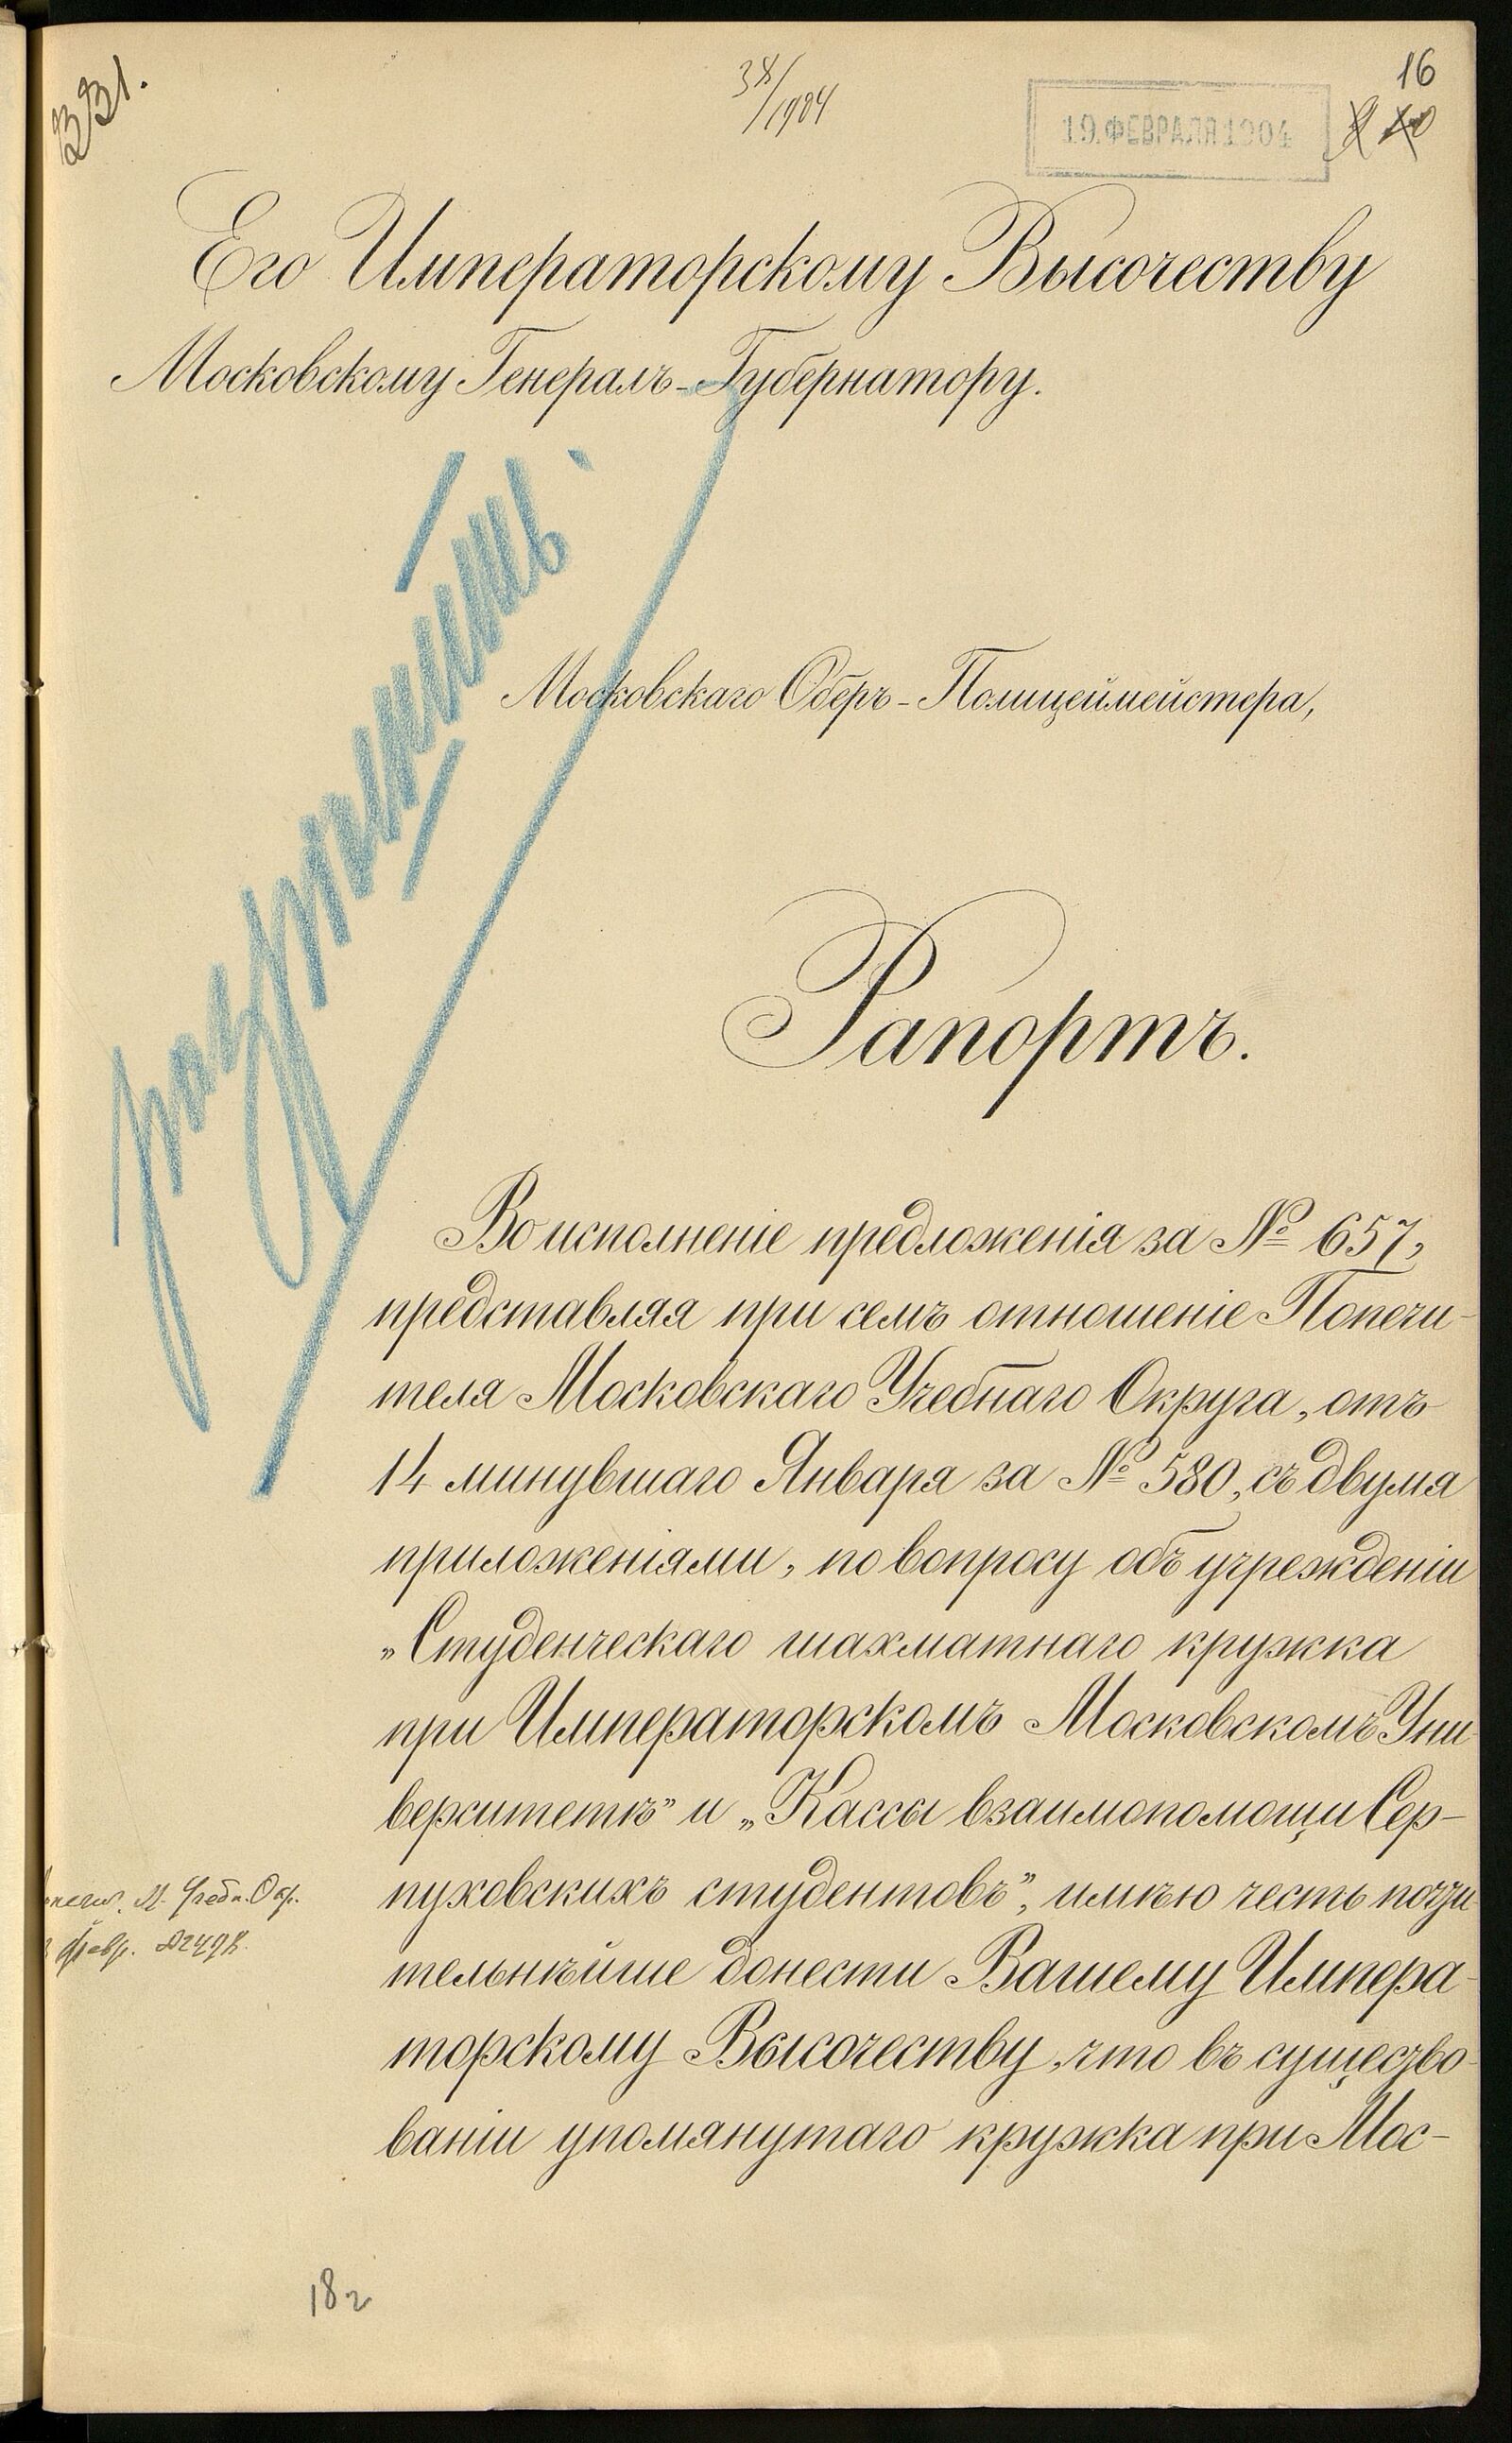 331.
38/1904
19 ФЕВРАЛЯ 1904
16
Его Императорскому Высочеству
Московскому Генералъ-Губернатору.
разрѣшить
Московскаго Оберъ-Полицеймейстера,
Рапортъ.
Во исполненіе предложенія за № 657,
представляя при семъ отношеніе Попечи-
теля Московскаго Учебнаго Округа, отъ
14 минувшаго Января за № 580, съ двумя
приложеніями, по вопросу объ учрежденіи
„Студенческаго шахматнаго кружка
при Императорскомъ Московскомъ Уни
верситетѣ" и „Кассы взаимопомощи Сер-
пуховскихъ студентовъ", имѣю честь почти
тельнѣйше донести Вашему Импера-
торскому Высочеству, что въ существо-
ваніи упомянутаго кружка при Мос-
М. Учебн. Окр.
февр.
182